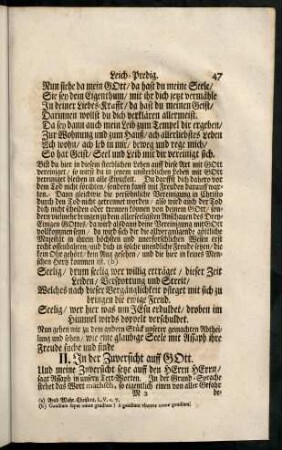 Leich-Predig. 47
Nun siehe da mein GOtt/ da hast du meine Seele/
Sie sey dein Eigenthum/ mit ihr dich jetzt vermähle
In deiner Liebes-Krafft/ da hast du meinen Geist/
Darinnen wollst du dich verklären allermeist.
Da sey dann auch mein Leib zum Tempel dir ergeben/
Zur Wohnung und zum Hauß/ ach allerliebstes Leben
Ach wohn/ ach leb in mir/ beweg und rege mich/
So hat Geist/ Seel und Leib mit dir vereinigt sich.
Bist du hier in diesem sterblichen Leben auff diese Art mit GOtt
vereiniget/ so wirst du in jenem unsterblichen Leben mit GOtt
vereiniget bleiben in alle Ewigkeit. Du darffst dich dahero vor
dem Tod nicht förchten/ sondern sanfft mit Freuden darauff war-
ten. Dann gleichwie die persönliche Vereinigung in Christo
durch den Tod nicht getrennet worden/ also wird auch der Tod
dich nicht scheiden oder trennen können von deinem GOtt/ son-
dern vielmehr bringen zu dem allerseeligsten Anschauen des Drey-
Einigen GOttes/ da wird alsdann deine Vereinigung mit GOtt
vollkommen seyn/ da wird sich dir die allervergnügende göttliche
Majestät in ihrem höchsten und unerforschlichen Wesen erst
recht offenbahren/ und dich in solche unendliche Freude setzen/ die
kein Ohr gehört/ kein Aug gesehen/ und die hier in keines Men-
schen Hertz kommen ist. (b)
Seelig/ drum seelig wer willig erträget/ dieser Zeit
Leiden/ Verspottung und Streit/
Welches nach dieser Vergänglichkeit pfleget mit sich zu
bringen die ewige Freud.
Seelig/ wer hier was um JEsu erduldet/ droben im
Himmel wirds doppelt verschuldet.
Nun gehen wir zu dem andern Stück unserer gemachten Abthei-
lung und sehen/ wie eine glaubige Seele mit Assaph ihre
Freude suche und finde
II. In der Zuversicht auff GOtt.
Und meine Zuversicht setze auff den HErrn HErrn/
sagt Assaph in unsern Text-Worten. In der Grund-Sprache
stehet das Wort machseh, so eigentlich einen von aller Gefahr
M 2 be-